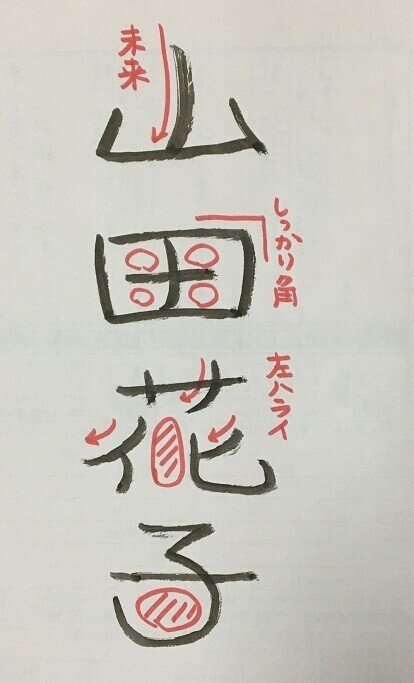 山田花子
未来
しっかり角
左ハライ